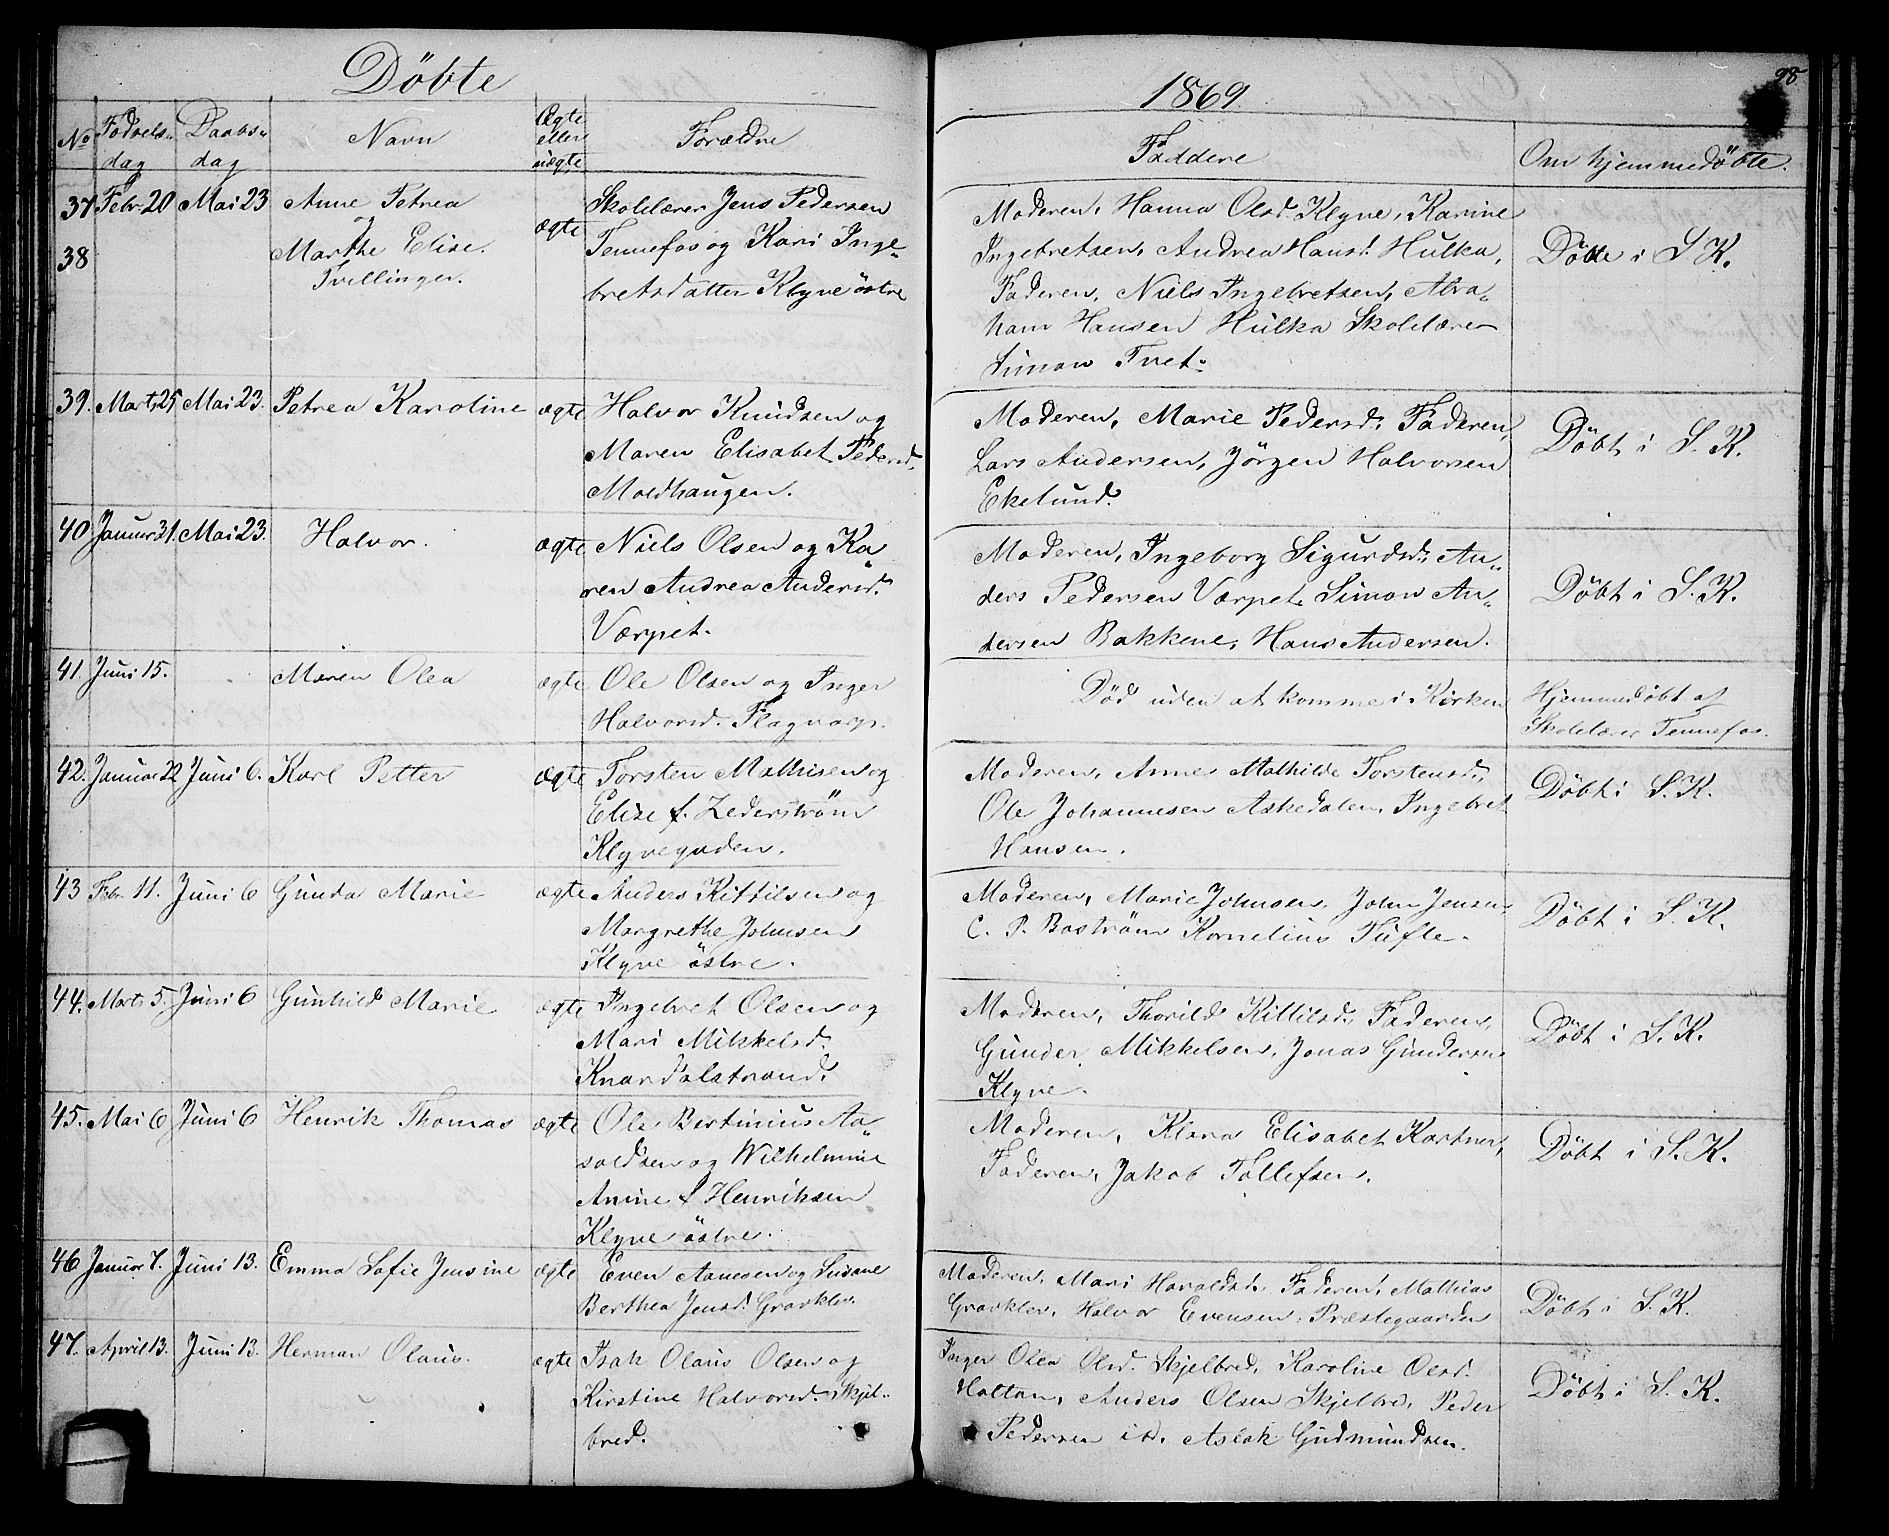 Döbte
No Fødsels- dag Daabs- dag Navn Ægte eller uægte Forældre
37 Febr 20 Mai 23 Anne Petrea ægte Skolelærer Jens Pedersen
og
38 Marthe Elise. Tennefos og Kari Inge-
Tvillinger. bretsdatter Klyve östre
39. Marts 25 Mai 23. Petrea Karoline ægte Halvor Knudsen og
Maren Elisabet Pedersd.
Moldhaugen.
40 Januar 31. Mai 23. Halvor. ægte Niels Olsen og Ka-
ren Andrea Andersd.
Værpet.
41. Juni 15. Maren Olea ægte Ole Olsen og Inger
Halvorsd. Flagvarp.
42. Januar 22 Juni 6. Karl Petter ægte Torsten Mathisen og
Elise f. Zederström
Klyvegaden.
43 Febr 11. Juni 6 Gunda Marie ægte Anders Kittilsen og
Margrethe Johnsen
Klyve östre.
44. Marts 5. Juni 6 Gunhild Marie ægte Ingebret Olsen og
Mari Mikkelsd.
Knardalstrand.
45. Mai 6 Juni 6 Henrik Thomas ægte Ole Bertinius Aa-
soldsen og Wilhelmine
Anine f Henriksen
Klyve östre.
46 Januar 7. Juni 13. Emma Sofie Jensine ægte Even Aanesen og Susane
Berthea Jensd. Gravklev.
47. April 13. Juni 13. Herman Olaus. ægte Isak Olaus Olsen og
Kirstine Halvorsd. Skjel-
bred.
1869.
98
Faddere Om hjemmedöbte.
Moderen, Hanna Olsd. Klyve, Karine
Ingebretsen, Andrea Hansd. Hulka,
Faderen, Niels Ingebretsen, Abra-
ham Hansen Hulka Skolelærer
Simon Tvet.
Döbte i S. K.
Moderen, Marie Pedersd. Faderen,
Lars Andersen, Jörgen Halvorsen
Ekelund.
Döbt i S. K.
Moderen, Ingeborg Sigurdsd. An-
ders Pedersen Værpet. Simon An-
dersen Bakkene, Hans Andersen.
Döbt i S. K.
Död uden at komme i Kirken
Hjemmedöbt af
Skolelærer Tennefos.
Moderen, Anne Mathilde Torstensd.
Ole Johannesen Askedalen, Ingebret
Hansen.
Döbt i S. K.
Moderen, Marie Johnsen, John Jensen,
C. P. Boström Kornelius Tufte.
Döbt i S. K.
Moderen, Thorild Kittilsd. Faderen,
Gunder Mikkelsen, Jonas Gundersen
Klyve.
Döbt i S. K.
Moderen, Klara Elisabet Kartner,
Faderen, Jakob Tollefsen.
Döbt i S. K.
Moderen, Mari Haraldsd. Faderen, Mathias
Gravklev, Halvor Evensen, Præstegaarden
Döbt i S. K.
Inger Olea Olsd. Skjelbred, Karoline Olsd.
Holtan, Anders Olsen Skjelbred, Peder
Pedersen ibd. Aslak Gudmundsen.
Döbt i S. K.